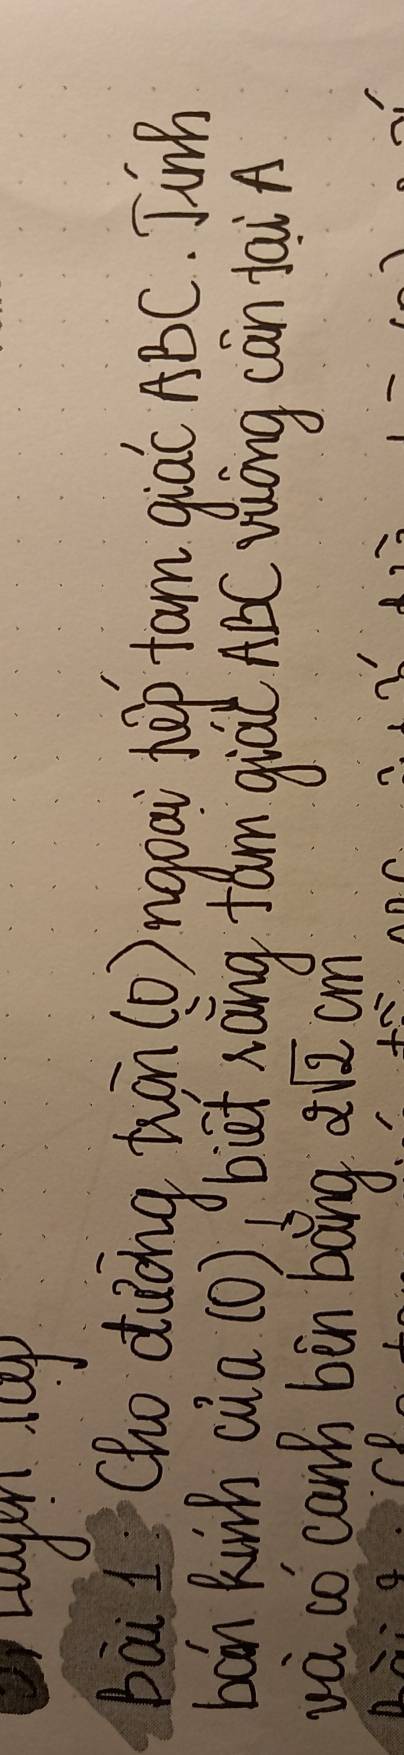 Luyện tập
Bài 1: Cho đường tròn (O) ngoại tiếp tam giác ABC. Tính
bán kính của (O), biết rằng tam giác ABC vuông cân tại A
và có cạnh bên bằng 2√2 cm